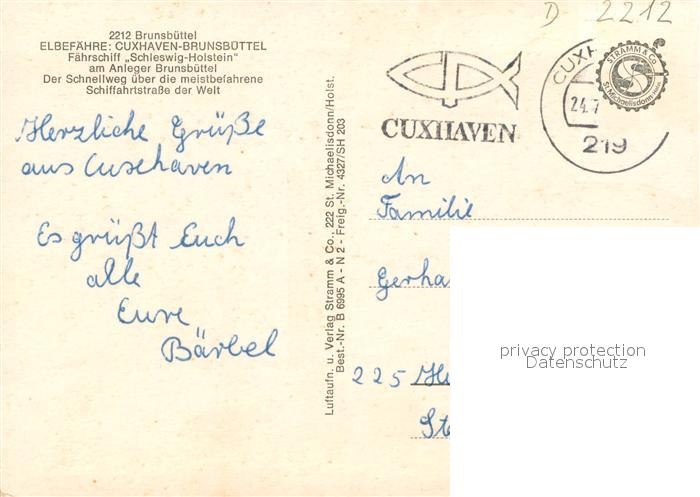 D 2212
2212 Brunsbüttel
ELBEFÄHRE: CUXHAVEN-BRUNSBÜTTEL
Fährschiff „Schleswig-Holstein"
am Anleger Brunsbüttel
Der Schnellweg über die meistbefahrene
Schiffahrtstraße der Welt
Herzliche Grüße
aus Cuxhaven
Es grüßt Euch
alle
Eure
Bärbel
Luftaufn. u. Verlag Stramm & Co., 222 St. Michaelisdonn/Holst.
Best.-Nr. B 6995 A - N 2 - Freig.-Nr. 4327/SH 203
CUXHAVEN
CUXH
24.7
219
STRAMM & CO
St. Michaelisdonn
An
Familie
Gerha
225 He
St
privacy protection
Datenschutz